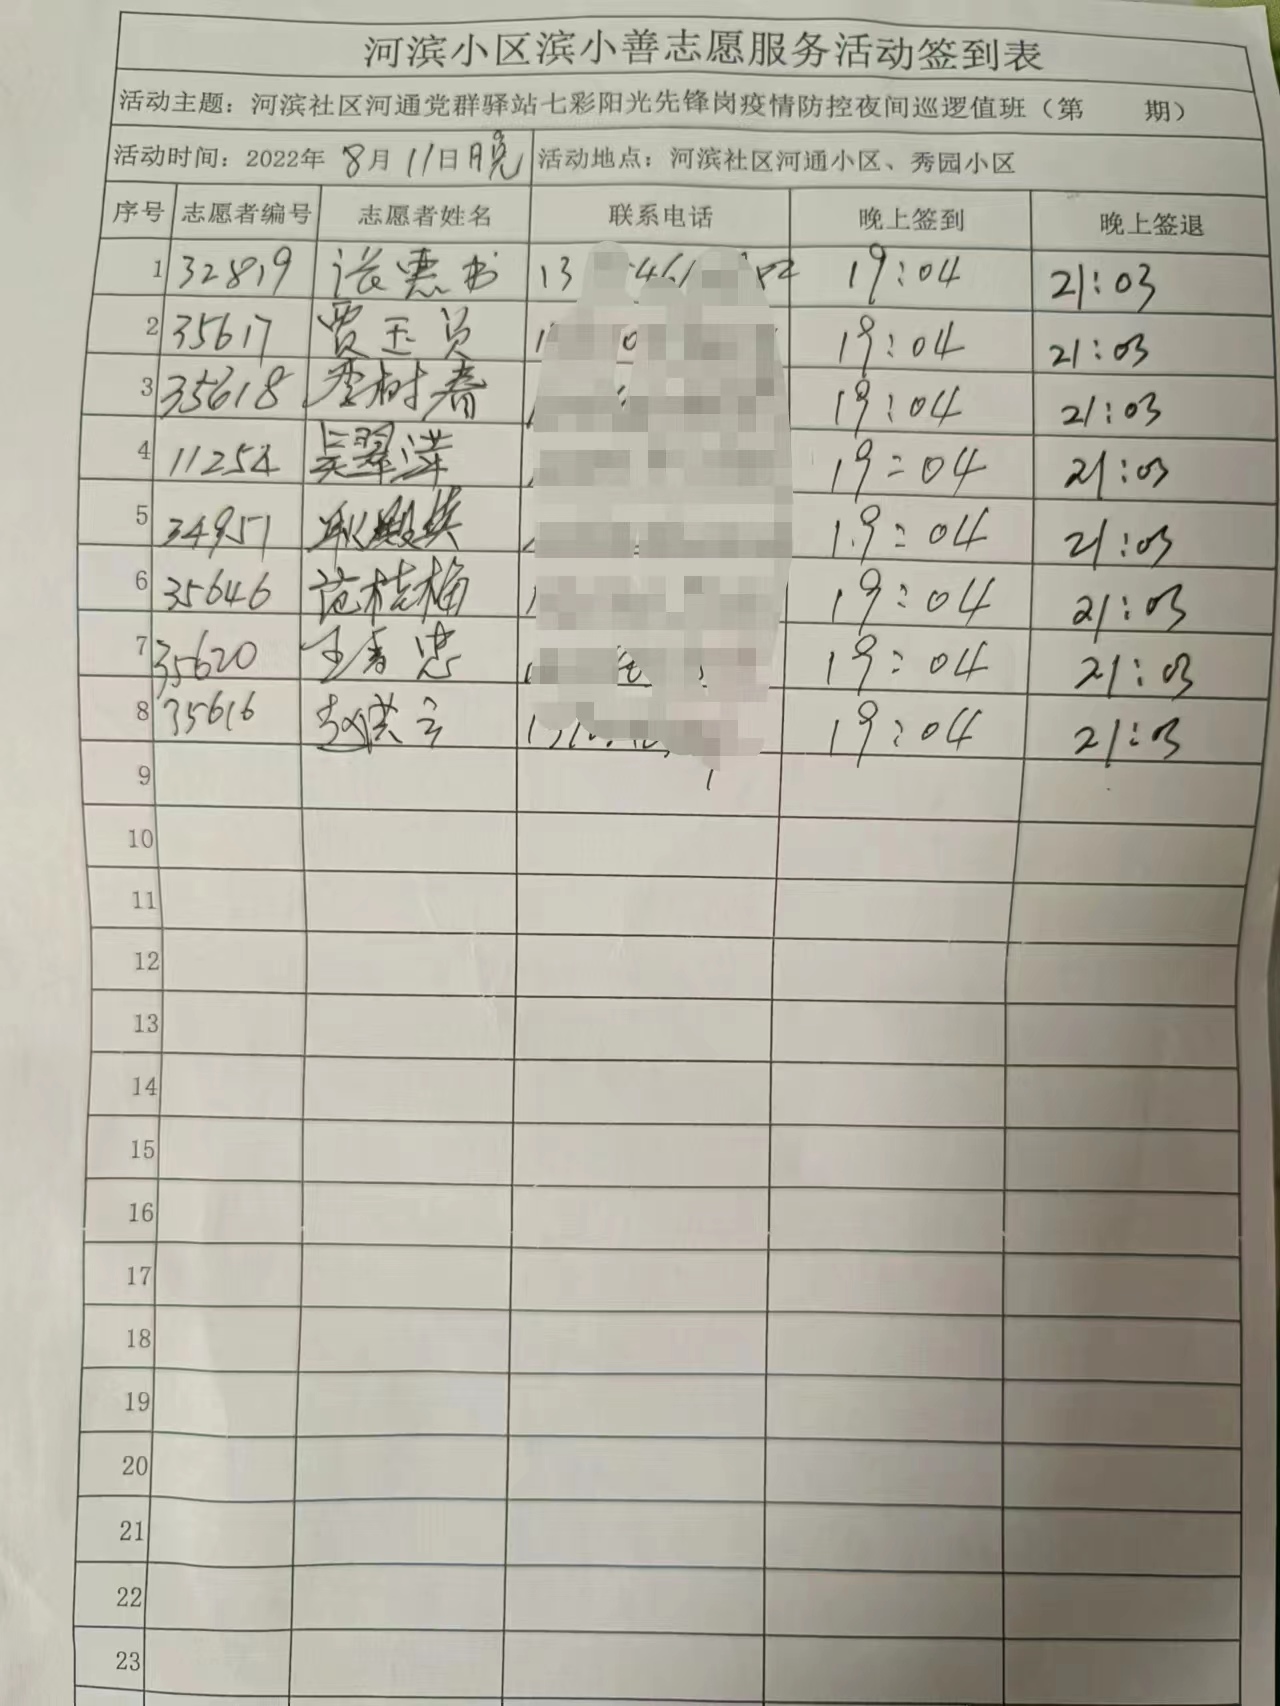 河滨小区滨小善志愿服务活动签到表
活动主题：河滨社区河通党群驿站七彩阳光先锋岗疫情防控夜间巡逻值班（第 期）
活动时间：2022年 8月11日晚 活动地点：河滨社区河通小区、秀园小区
序号 志愿者编号 志愿者姓名 联系电话 晚上签到 晚上签退
1 32819 13 19:04 21:03
2 35617 贾玉 19:04 21:03
3 35618 李树春 19:04 21:03
4 11254 吴翠萍 19:04 21:03
5 34951 19:04 21:03
6 35646 范桂梅 19:04 21:03
7 35620 王春忠 19:04 21:03
8 35616 赵洪 19:04 21:03
9
10
11
12
13
14
15
16
17
18
19
20
21
22
23